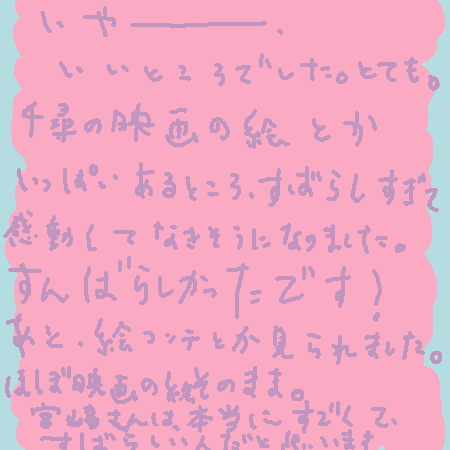 いやーーー、
いいところでした。とても。
千尋の映画の絵とか
いっぱいあるところ、すばらしすぎて
感動してなきそうになりました。
すんばらしかったです!
あと、絵コンテとか見られました。
ほぼ映画の絵そのまま。
宮崎さんは、本当にすごくて、
すばらしいんだと思います